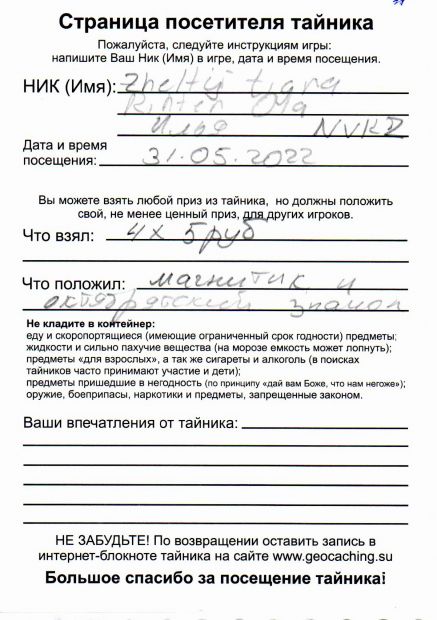 Страница посетителя тайника
Пожалуйста, следуйте инструкциям игры:
напишите Ваш Ник (Имя) в игре, дата и время посещения.
НИК (Имя): Zheltij tigra
Olga
NVKZ
Дата и время
посещения: 31.05.2022
Вы можете взять любой приз из тайника, но должны положить
свой, не менее ценный приз, для других игроков.
Что взял: 4 х 5 руб
Что положил: магнитик и
октябрятский значок
Не кладите в контейнер:
еду и скоропортящиеся (имеющие ограниченный срок годности) предметы;
жидкости и сильно пахучие вещества (на морозе емкость может лопнуть);
предметы «для взрослых», а так же сигареты и алкоголь (в поисках
тайников часто принимают участие и дети);
предметы пришедшие в негодность (по принципу «дай вам Боже, что нам негоже»);
оружие, боеприпасы, наркотики и предметы, запрещенные законом.
Ваши впечатления от тайника:
НЕ ЗАБУДЬТЕ! По возвращении оставить запись в
интернет-блокноте тайника на сайте www.geocaching.su
Большое спасибо за посещение тайника!